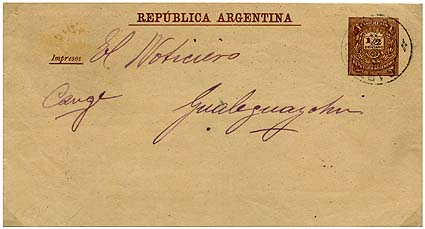 REPÚBLICA ARGENTINA
Impresos
El Noticiero
1/2
Cange Gualeguaychu